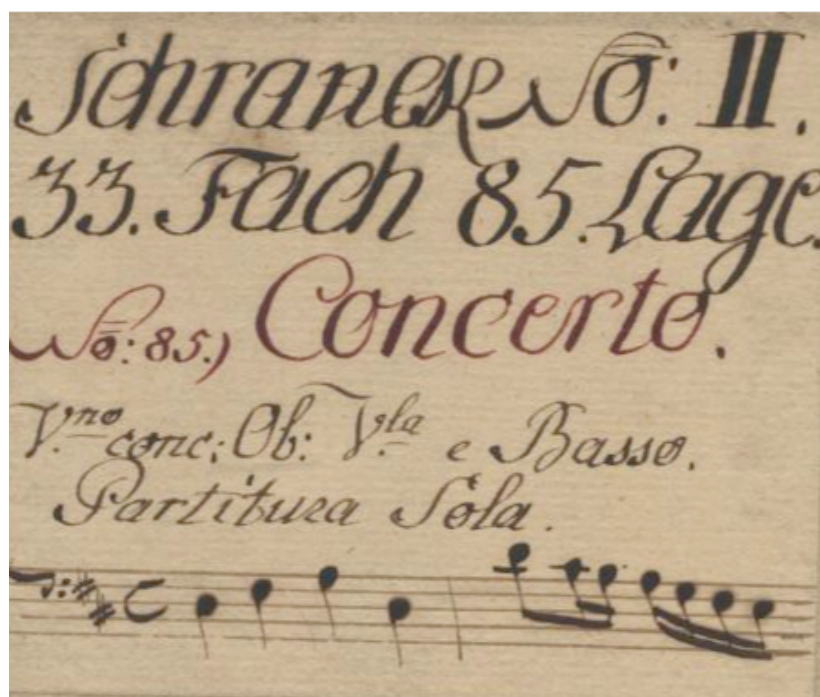 Schranck No: II.
33. Fach 85. Lage.
No: 85.) Concerto.
V.no conc: Ob: V.la e Basso.
Partitura Sola.